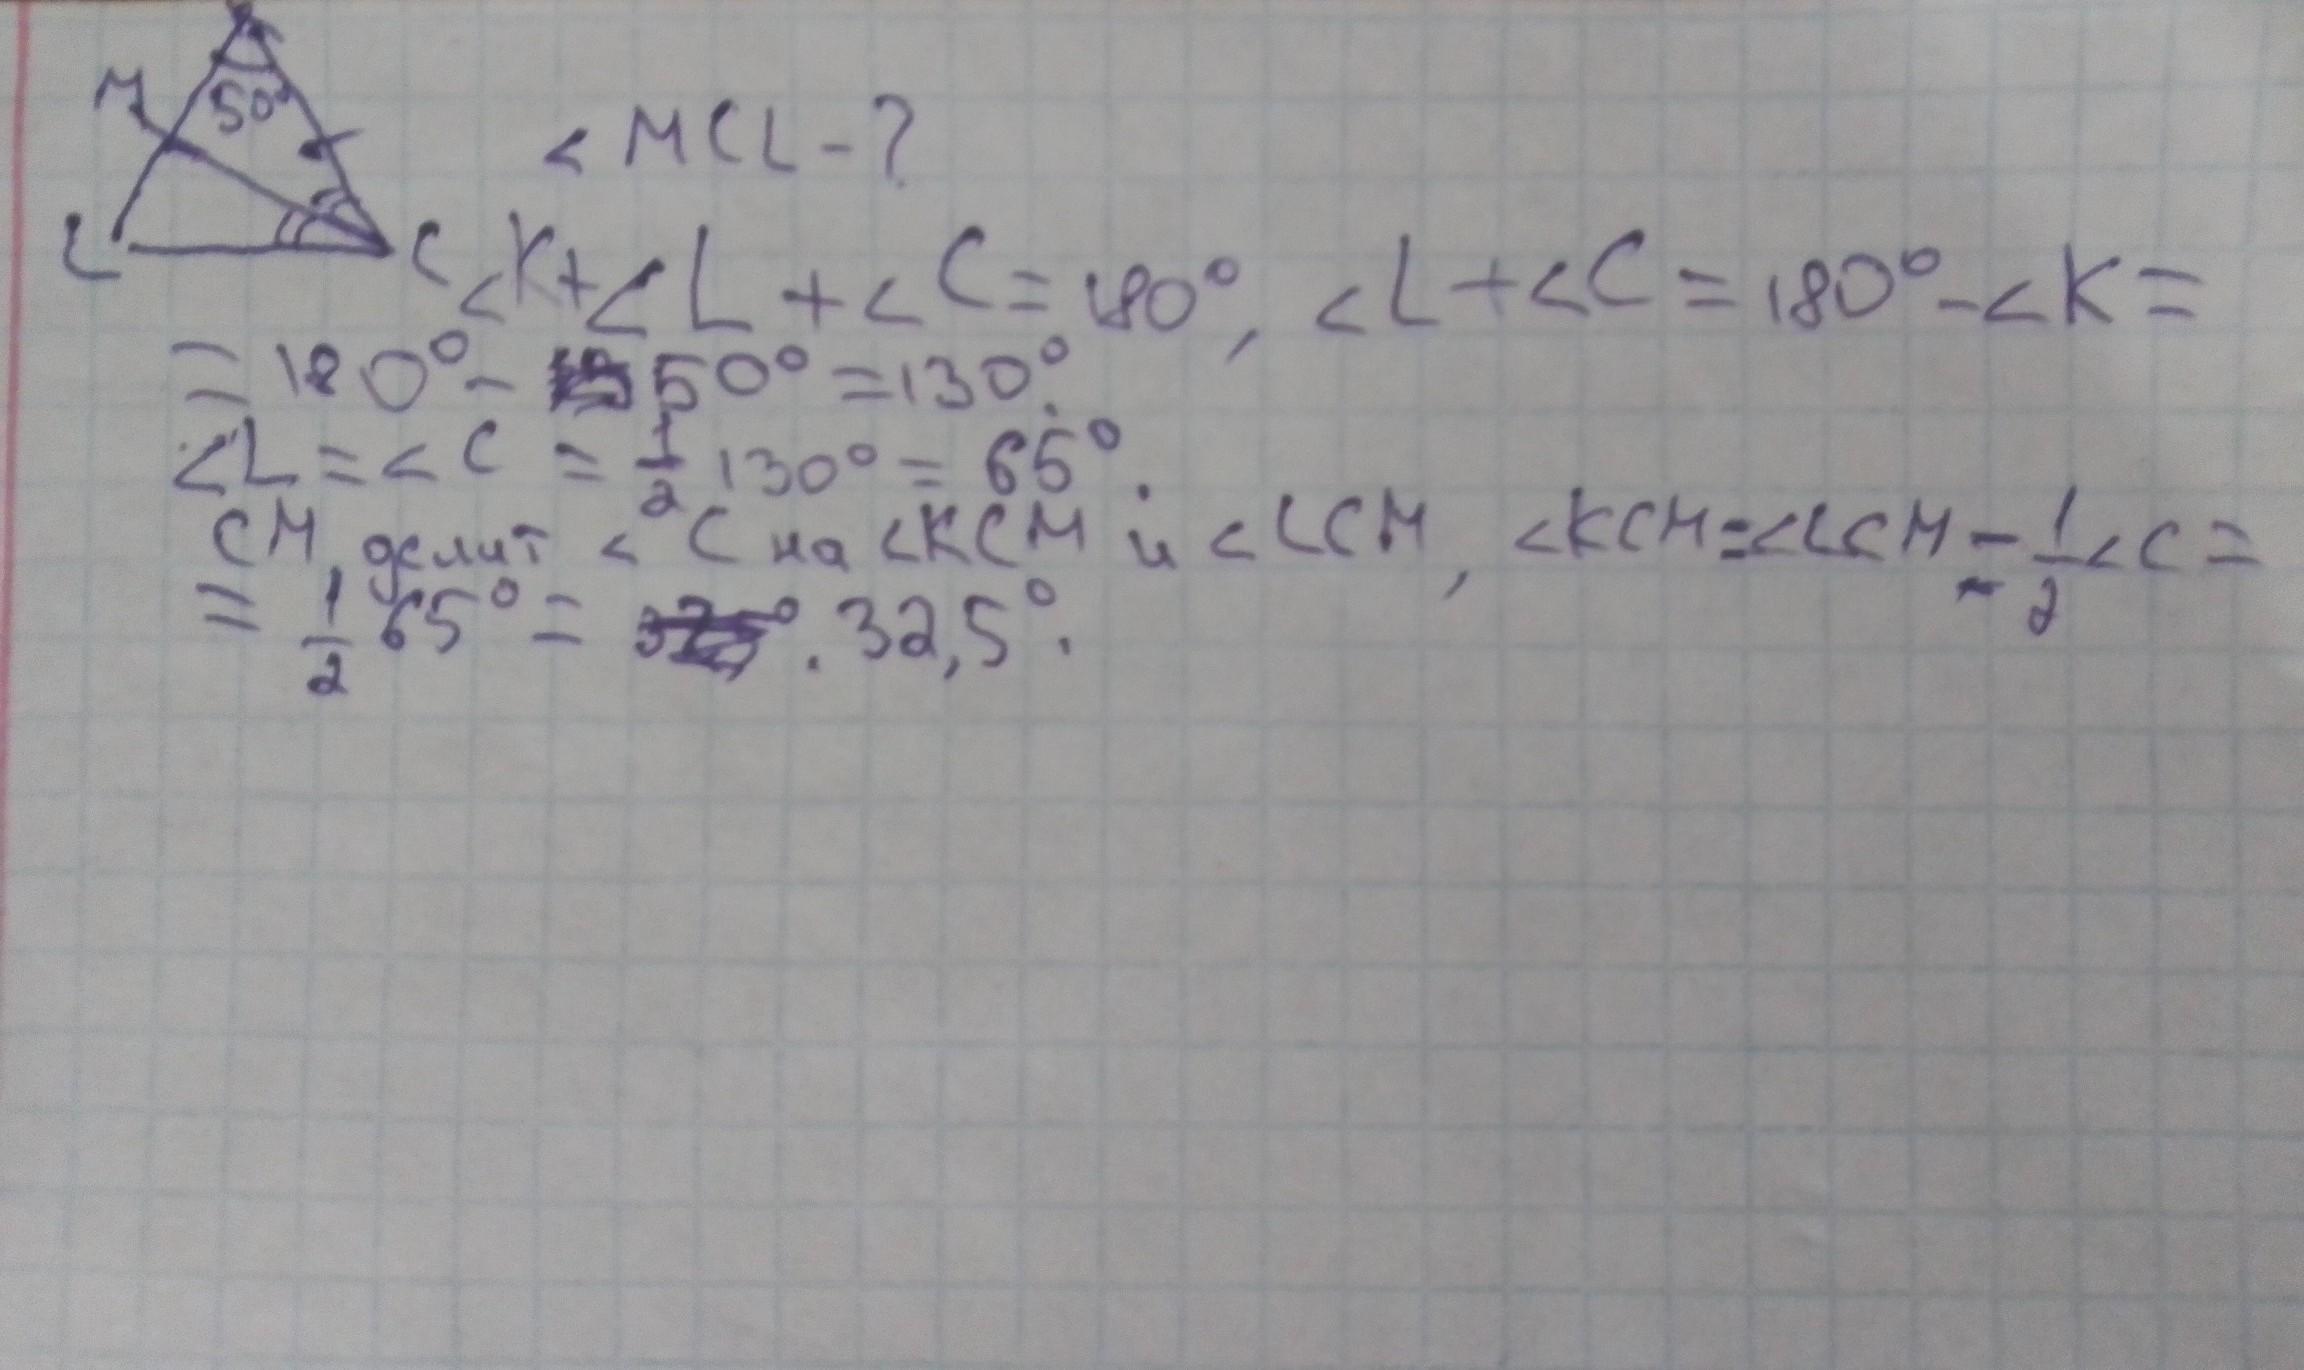 M
50°
< MCL - ?
L
C
<K + <L + <C = 180°, <L + <C = 180° - <K =
= 180° - 50° = 130°.
<L = <C = 1/2 130° = 65°.
CM делит <C на <KCM и <LCM, <KCM = <LCM = 1/2 <C =
= 1/2 65° = . 32,5°.